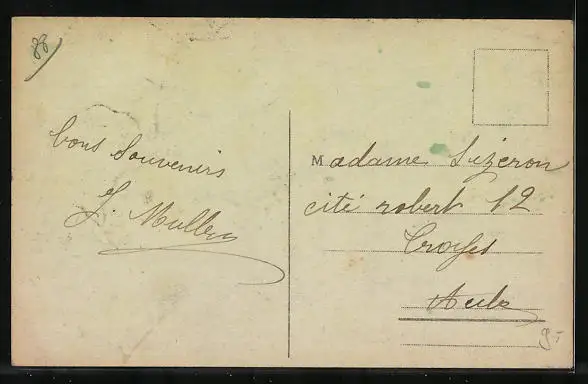 88
bons souvenirs
J. Muller
Madame Luzeron
cité robert 12
Troyes
Aube